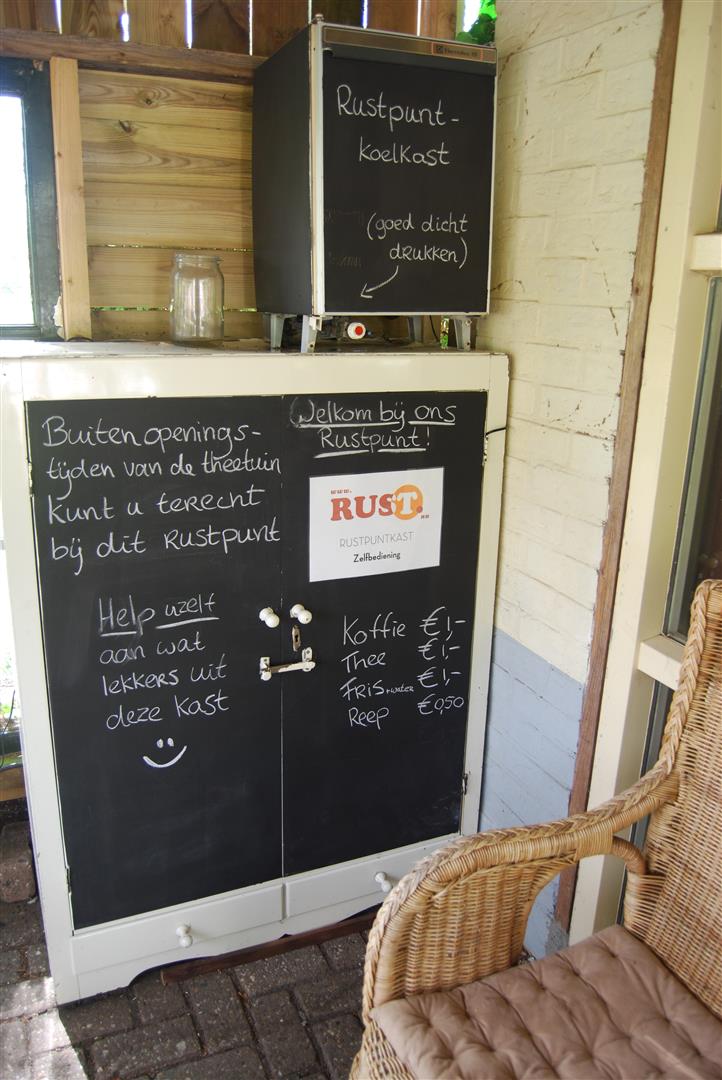 Rustpunt-
koelkast
(goed dicht
drukken)
Buiten openings-
tijden van de theetuin
kunt u terecht
bij dit rustpunt
Help uzelf
aan wat
lekkers uit
deze kast
Welkom bij ons
Rustpunt!
RUST.
RUSTPUNTKAST
Zelfbediening
Koffie €1,-
Thee €1,-
Fris + water €1,-
Reep €0,50